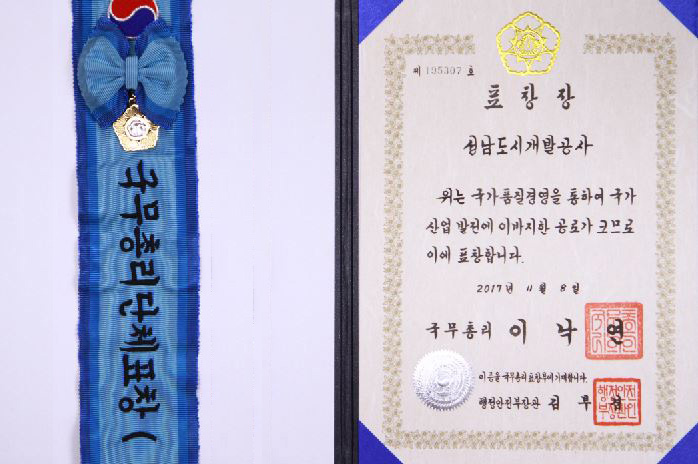 국무총리단체표창(
제 195307 호
표창장
성남도시개발공사
위는 국가품질경영을 통하여 국가
산업 발전에 이바지한 공로가 크므로
이에 표창합니다.
2017년 11월 8일
국무총리 이낙연
이 증을 국무총리표창부에 기재합니다.
행정안전부장관 김부겸